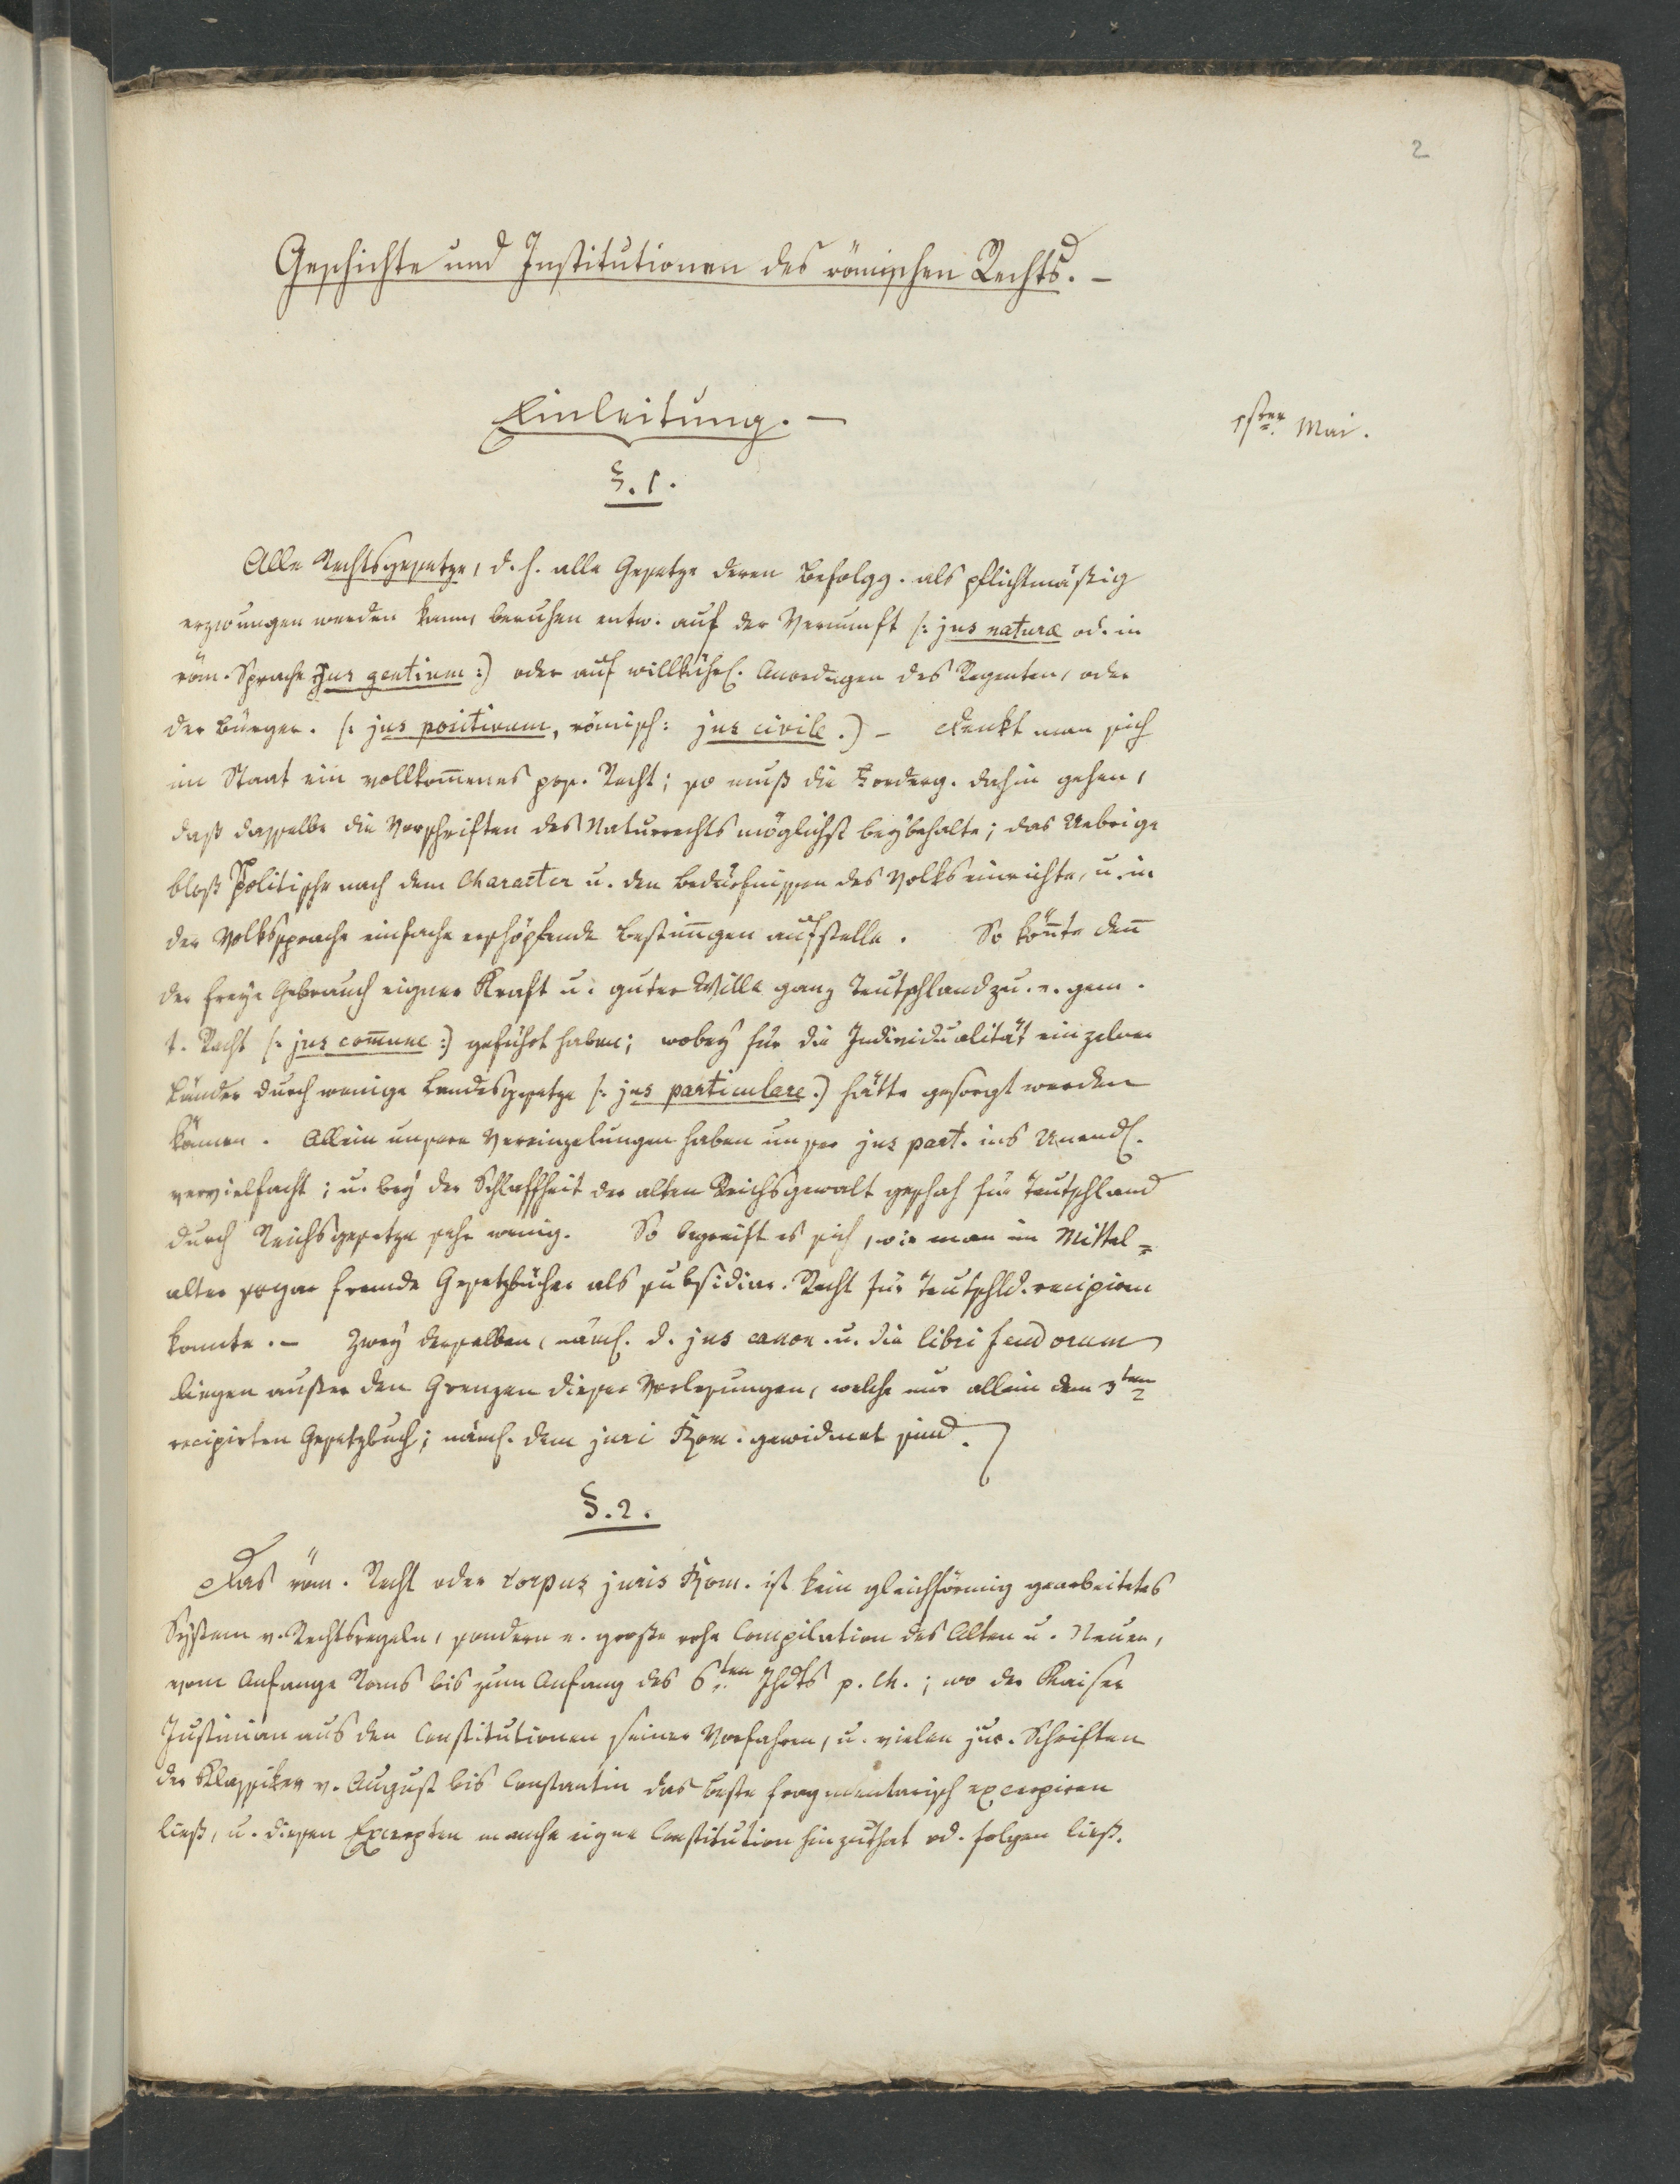 2
Geschichte und Institutionen des römischen Rechts. –
Einleitung. –
1sten Mai.
§. 1.
Alle Rechtsgesetze, d. h. alle Gesetze deren Befolgg. als pflichtmäßig
erzwungen werden kann, beruhen entw. auf der Vernunft /: jus naturæ od. in
röm. Sprache Jus gentium :) oder auf willkührl. Anordngen des Regenten, oder
der Bürger. /: jus positivum, römisch: jus civile .) – Denkt man sich
im Staat ein vollkom̄enes pos. Recht; so muß die Forderg. dahin gehen,
daß dasselbe die Vorschriften des Naturrechts möglichst beybehalte; das Uebrige
bloß Politische nach dem Character u. den Bedürfnissen des Volks einrichte, u. in
der Volkssprache einfache erschöpfende Bestim̄ngen aufstelle. So kön̄te den̄
der freye Gebrauch eigner Kraft u. guter Wille ganz Teutschland zu. e. gem.
t. Recht /: jus com̄une :) geführt haben; wobey für die Individualität einzelner
Länder durch wenige Landesgesetze /: jus particulare .) hätte gesorgt werden
können. Allein unsere Vereinzelungen haben unser jus part. ins Unendl.
vervielfacht; u. bey der Schlaffheit der alten Reichsgewalt geschah für Teutschland
durch Reichsgesetze sehr wenig. So begreift es sich, wie man im Mittel=
alter sogar fremde Gesetzbücher als subsidiar. Recht für Teutschld. recipiren
konnte. – Zwey derselben, näml. d. jus canon. u. die libri feudorum
liegen außer den Grenzen dieser Vorlesungen, welche nur allein dem 3ten
recipirten Gesetzbuch; näml. dem juri Rom. gewidmet sind.
§. 2.
Das röm. Recht oder corpus juris Rom. ist kein gleichförmig gearbeitetes
System v. Rechtsregeln, sondern e. große rohe Compilation des Alten u. Neuen,
vom Anfange Roms bis zum Anfang des 6ten Jhdts p. Ch.; wo der Kaiser
Justinian aus den Constitutionen seiner Vorfahren, u. vielen jur. Schriften
der Klassiker v. August bis Constantin das Beste fragmentarisch excerpiren
ließ, u. diesen Excerpten manche eigne Constitution hinzuthat od. folgen ließ.